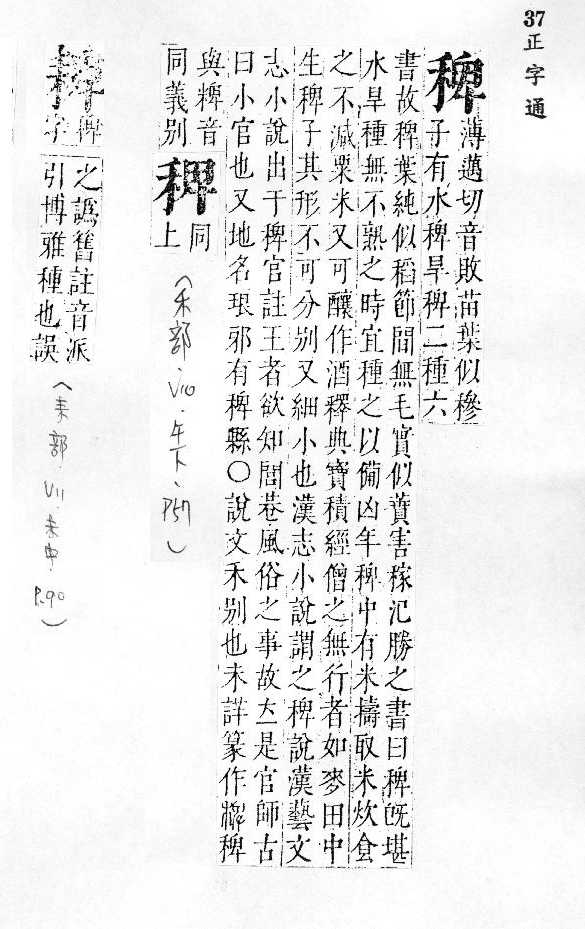 37 正字通
稗 薄邁切音敗苗葉似穇
子有水稗旱稗二種六
書故稗葉純似稻節間無毛實似䔯害稼氾勝之書曰稗旣堪
水旱種無不熟之時宜種之以備凶年稗中有米擣取米炊食
之不減粟米又可釀作酒釋典寶積經僧之無行者如麥田中
生稗子其形不可分別又細小也漢志小說謂之稗說漢藝文
志小說出于稗官註王者欲知閭巷風俗之事故立是官師古
曰小官也又地名琅邪有稗縣〇說文禾別也未詳篆作稗稗
與粺音
同義別
稗 同
上
(禾部.V10.午下.P57)
稗
字
之譌舊註音派
引博雅種也誤
(耒部 V11.未中 P.90)